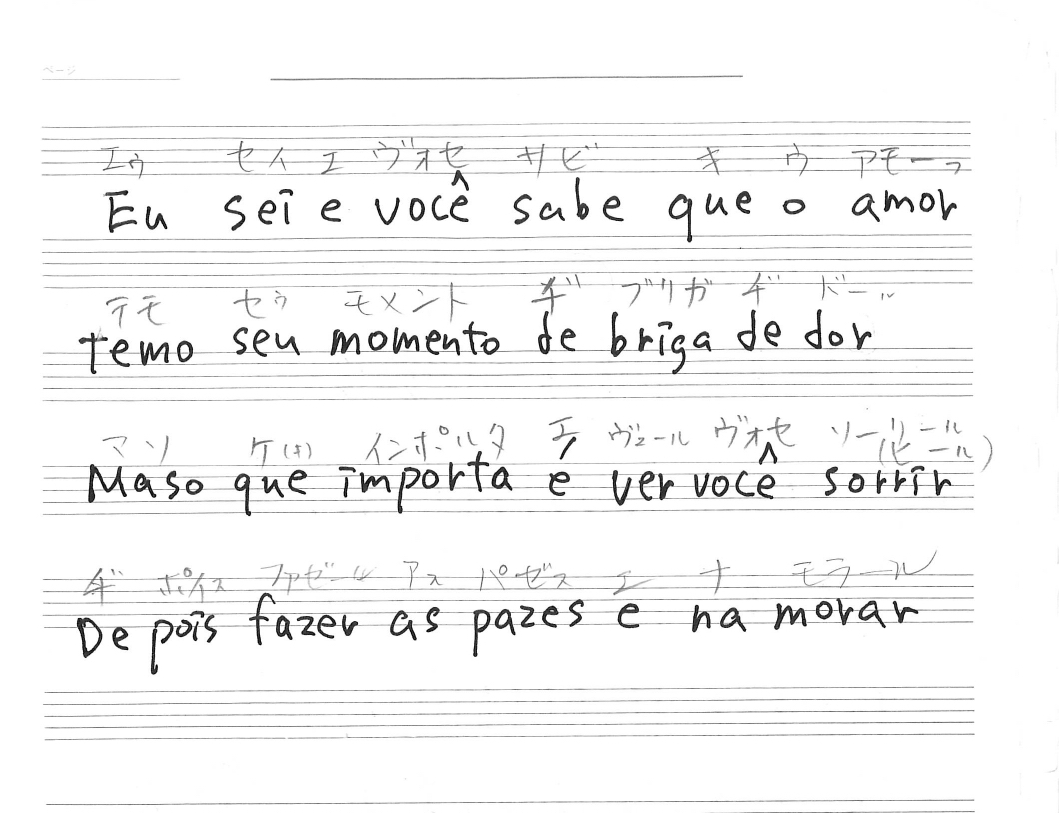 ページ
エゥ セイ エ ヴォセ サビ キ ウ アモーっ
Eu sei e você sabe que o amor
テモ セゥ モメント ヂ ブリガ ヂ ドール
temo seu momento de briga de dor
マソ ケ(キ) インポルタ エ ヴェール ヴォセ ソーリール
(ヒール)
Maso que importa é ver você sorrir
ヂ ポイス ファゼール アス パゼス エ ナ モラール
De pois fazer as pazes e na morar